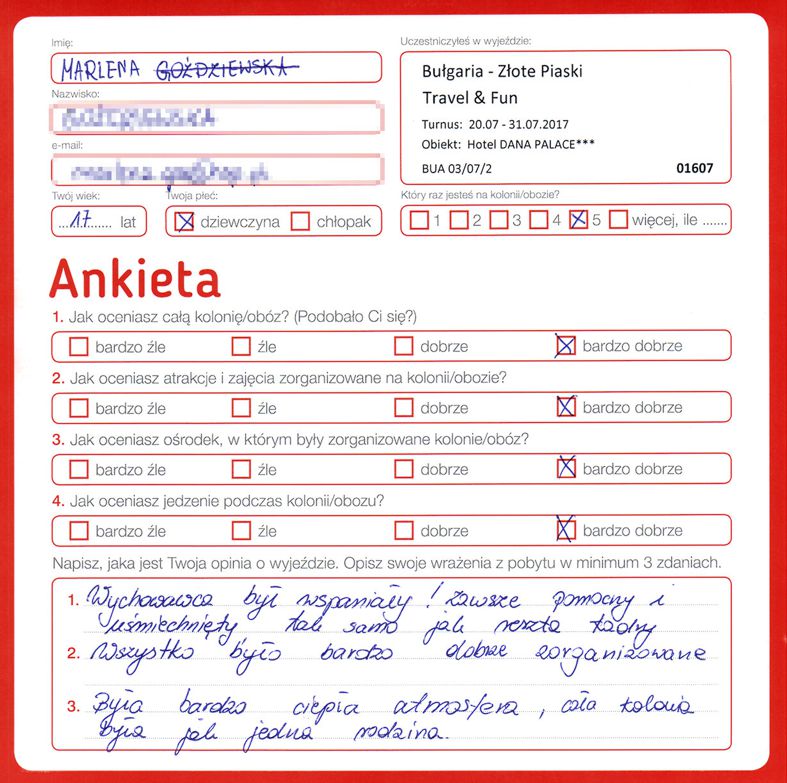 Imię:
MARLENA GOŹDZIEWSKA
Nazwisko:
e-mail:
Twój wiek:
17 lat
Twoja płeć:
dziewczyna chłopak
Uczestniczyłeś w wyjeździe:
Bułgaria - Złote Piaski
Travel & Fun
Turnus: 20.07 - 31.07.2017
Obiekt: Hotel DANA PALACE***
BUA 03/07/2 01607
Który raz jesteś na kolonii/obozie?
1 2 3 4 5 więcej, ile .......
Ankieta
1. Jak oceniasz całą kolonię/obóz? (Podobało Ci się?)
bardzo źle źle dobrze bardzo dobrze
2. Jak oceniasz atrakcje i zajęcia zorganizowane na kolonii/obozie?
bardzo źle źle dobrze bardzo dobrze
3. Jak oceniasz ośrodek, w którym były zorganizowane kolonie/obóz?
bardzo źle źle dobrze bardzo dobrze
4. Jak oceniasz jedzenie podczas kolonii/obozu?
bardzo źle źle dobrze bardzo dobrze
Napisz, jaka jest Twoja opinia o wyjeździe. Opisz swoje wrażenia z pobytu w minimum 3 zdaniach.
1. Wychowawca był wspaniały! Zawsze pomocny i
uśmiechnięty tak samo jak reszta kadry
2. Wszystko było bardzo dobrze zorganizowane
3. Była bardzo ciepła atmosfera, cała kolonia
była jak jedna rodzina.